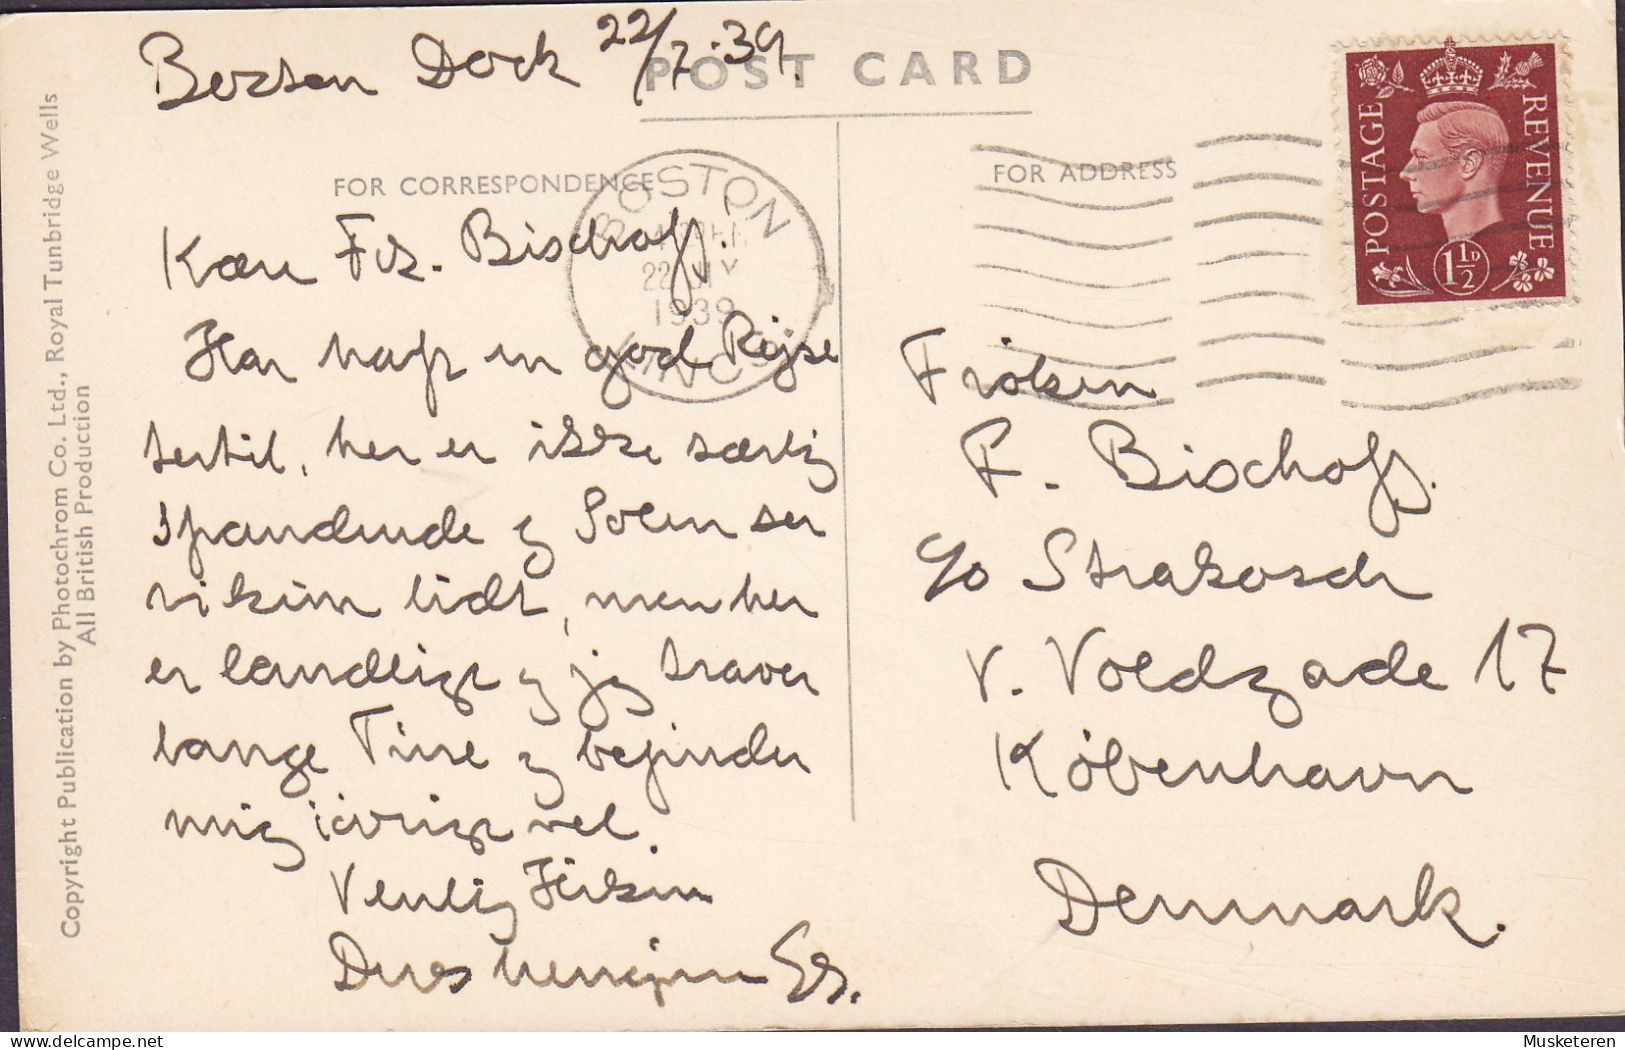 Boston Dock 22/7.39.
POST CARD
FOR CORRESPONDENCE
FOR ADDRESS
BOSTON
22 JLY
1939
LINCS
POSTAGE
REVENUE
1½D
Kære Frk. Bischoff.
Har haft en god Rejse
hertil, her er ikke særlig
spændende og Solen ser
vi kun lidt, men her
er landligt og jeg traver
lange Ture og befinder
mig iøvrigt vel.
Venlig Hilsen
Deres hengivne
Frøken
F. Bischoff.
c/o Strakosch
V. Voldgade 17
København
Denmark.
Copyright Publication by Photochrom Co. Ltd., Royal Tunbridge Wells
All British Production
Musketeren
www.delcampe.net